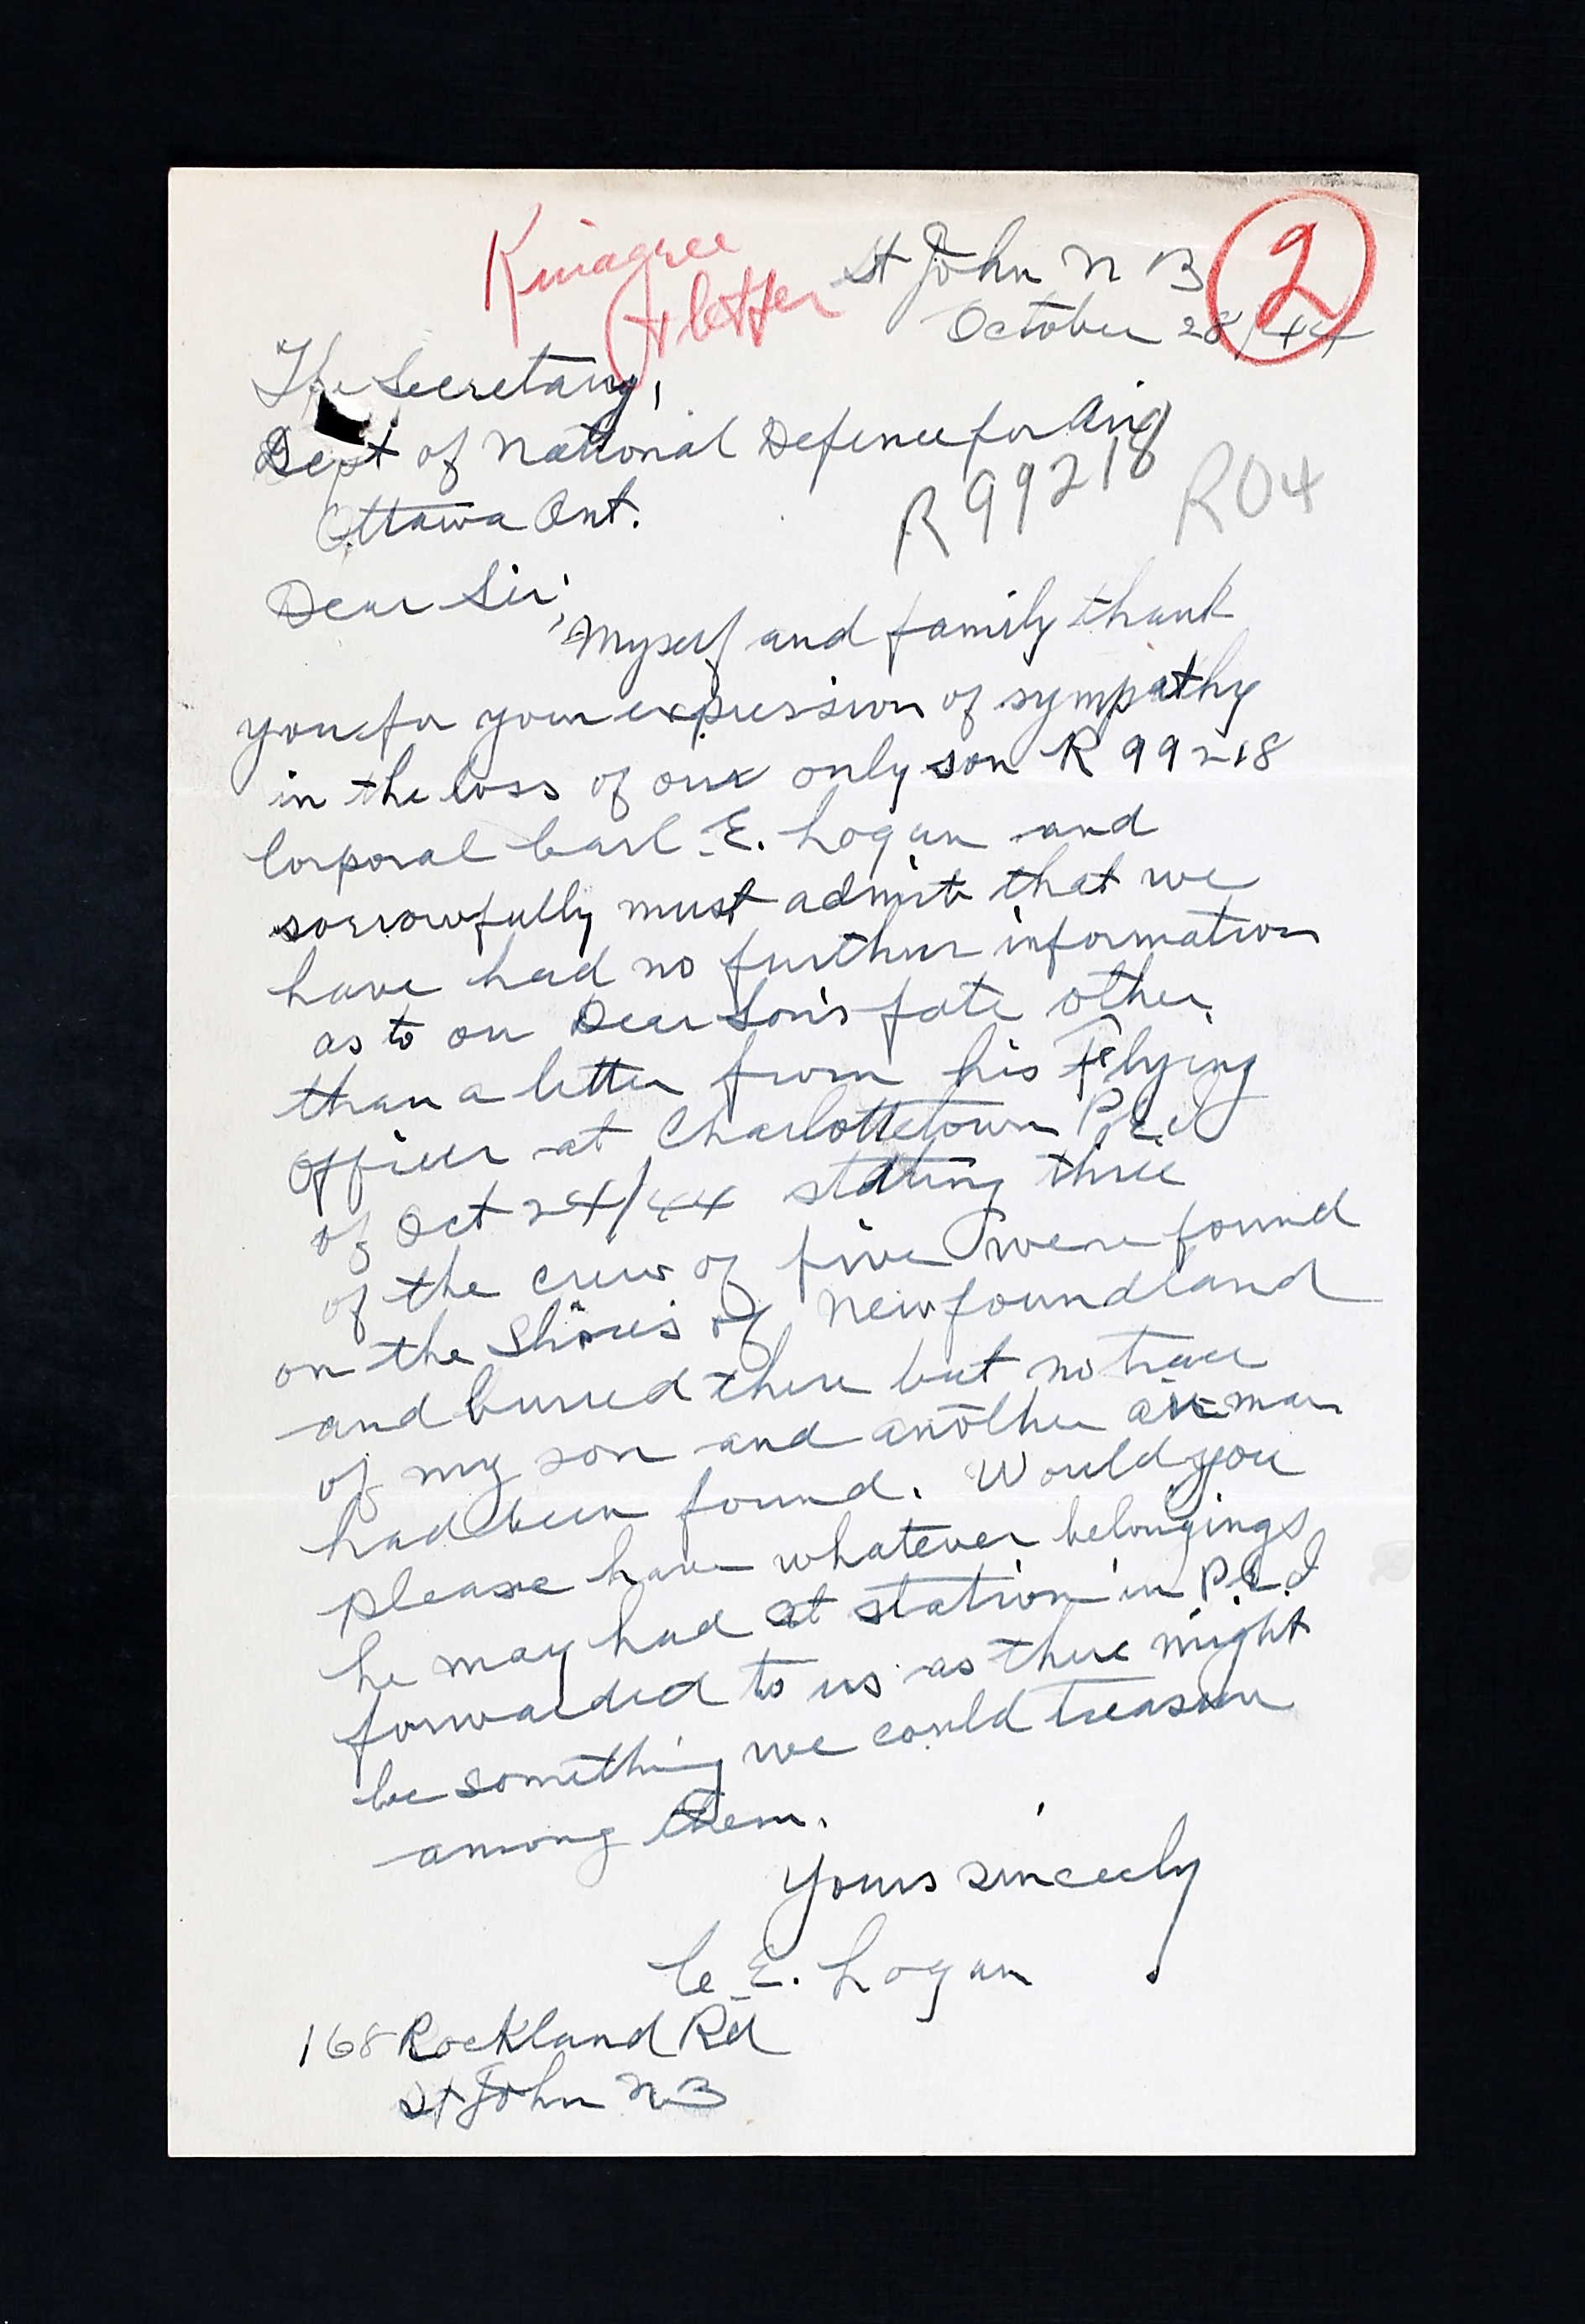 St John N B
2
October 28/44
letter
The Secretary,
Dept of National Defence for Air
R99218 R04
Ottawa Ont.
Dear Sir;
Myself and family thank
you for your expression of sympathy
in the loss of our only son R 99218
Corporal Carl E. Logan and
sorrowfully must admit that we
have had no further information
as to our Dear Son's fate other
than a letter from his Flying
Officer at Charlottetown P.E.I
of Oct 24/44 stating three
of the crew of five were found
on the Shores of Newfoundland
and buried there but no trace
of my son and another airman
had been found. Would you
please have whatever belongings
he may had at station in P.E.I
forwarded to us as there might
be something we could treasure
among them.
Yours sincerely
C. E. Logan
168 Rockland Rd
St John N B